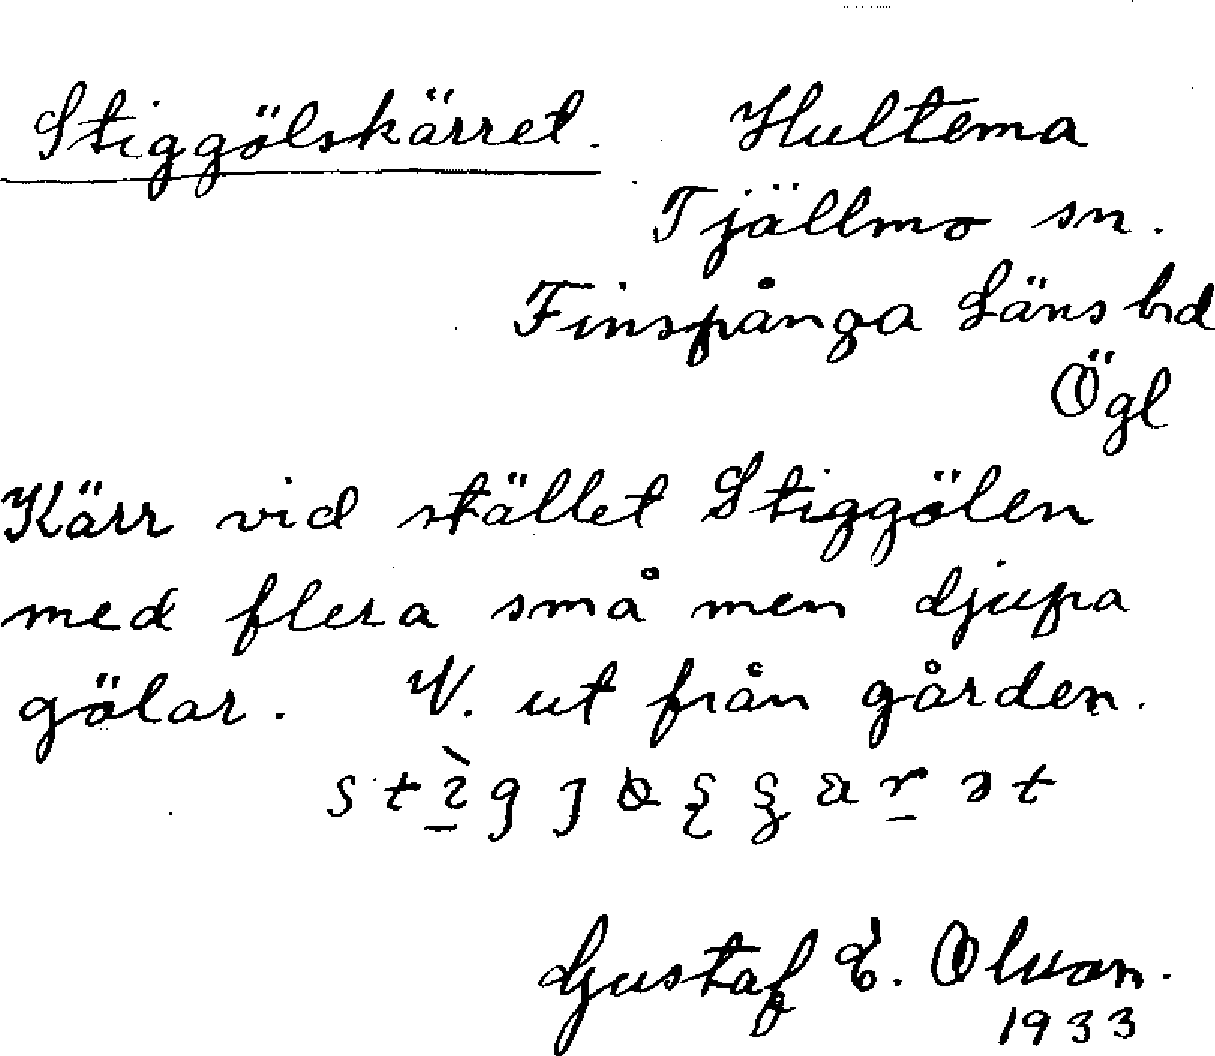 Stiggölskärret. Hultema
Tjällmo sn.
Finspånga Läns hd
Ögl
Kärr vid stället Stiggölen
med flera små men djupa
gölar. V. ut från gården.
Gustaf E. Olson.
1933